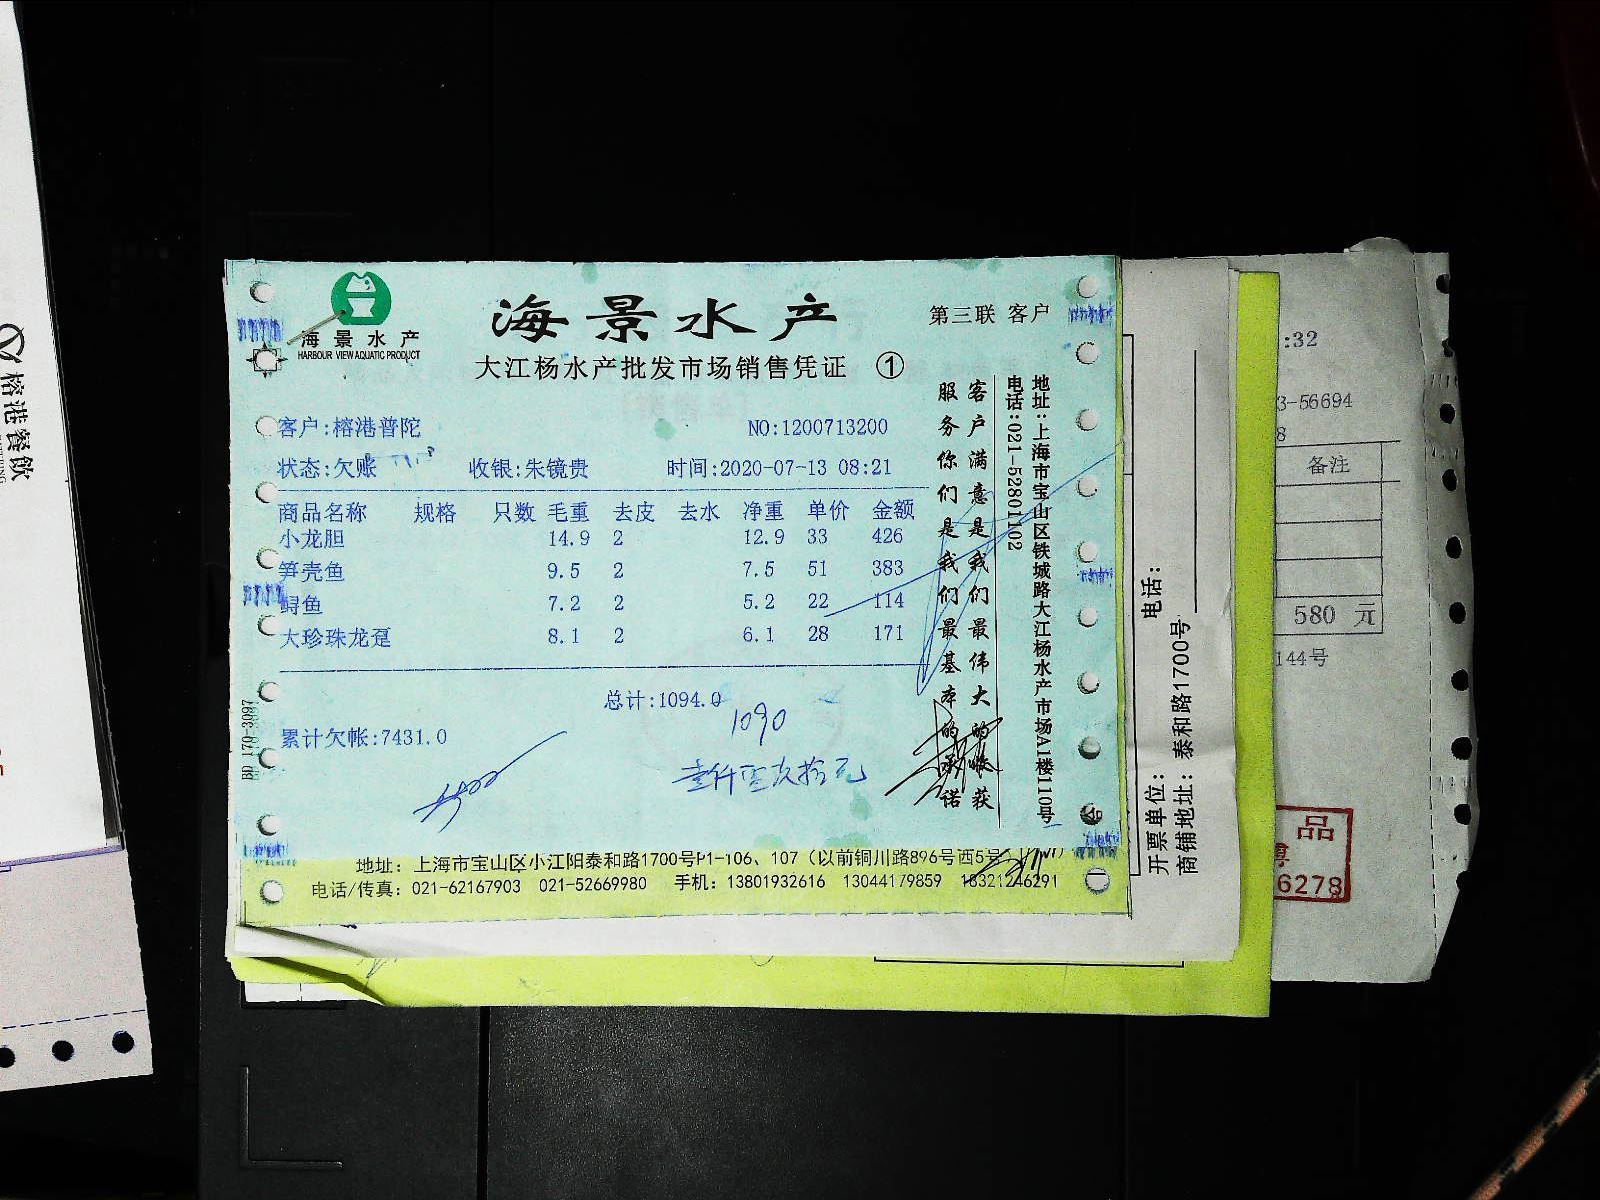 海景水产
HARBOUR VIEW AQUATIC PRODUCT
海景水产
第三联 客户
大江杨水产批发市场销售凭证 ①
客户:榕港普陀 NO:1200713200
状态:欠账 收银:朱镜贵 时间:2020-07-13 08:21
商品名称 规格 只数 毛重 去皮 去水 净重 单价 金额
小龙胆 14.9 2 12.9 33 426
笋壳鱼 9.5 2 7.5 51 383
鲟鱼 7.2 2 5.2 22 114
大珍珠龙趸 8.1 2 6.1 28 171
总计:1094.0
1090
累计欠帐:7431.0
壹仟零玖拾元
客户满意是我们最伟大的收获
服务你们是我们最基本的承诺
地址:上海市宝山区铁城路大江杨水产市场A1楼110号
电话:021-52801102
BD 179-3097
地址: 上海市宝山区小江阳泰和路1700号P1-106、107（以前铜川路896号西5号
电话/传真: 021-62167903 021-52669980 手机: 13801932616 13044179859 18321246291
电话:
开票单位:
商铺地址: 泰和路1700号
:32
3-56694
8
备注
580 元
144号
品
6278
榕港餐飲